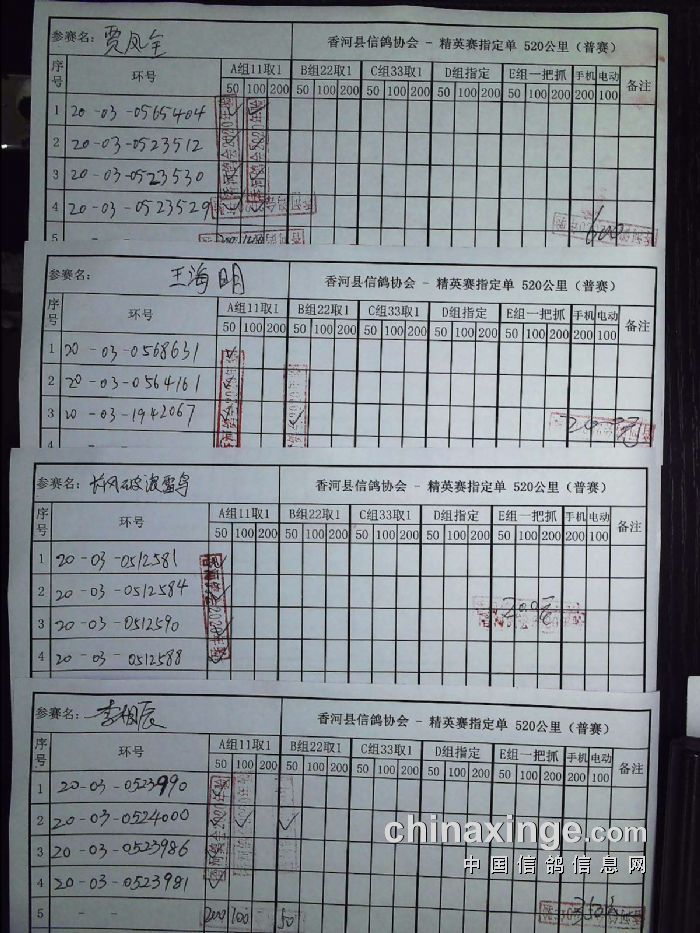 参赛名: 贾凤全 香河县信鸽协会 - 精英赛指定单 520公里（普赛）
序号 环号 A组11取1 B组22取1 C组33取1 D组指定 E组一把抓 手机 电动 备注
50 100 200 50 100 200 50 100 200 50 100 200 50 100 200 200 100
1 20-03-0565404
2 20-03-0523512
3 20-03-0523530
4 20-03-0523529
600
5 - -
参赛名: 王海明 香河县信鸽协会 - 精英赛指定单 520公里（普赛）
序号 环号 A组11取1 B组22取1 C组33取1 D组指定 E组一把抓 手机 电动 备注
50 100 200 50 100 200 50 100 200 50 100 200 50 100 200 200 100
1 20-03-0568631
2 20-03-0564161
3 20-03-1942067
4 - -
参赛名: 香河县信鸽协会 - 精英赛指定单 520公里（普赛）
序号 环号 A组11取1 B组22取1 C组33取1 D组指定 E组一把抓 手机 电动 备注
50 100 200 50 100 200 50 100 200 50 100 200 50 100 200 200 100
1 20-03-0512581
2 20-03-0512584
200元
3 20-03-0512590
4 20-03-0512588
参赛名: 李相辰 香河县信鸽协会 - 精英赛指定单 520公里（普赛）
序号 环号 A组11取1 B组22取1 C组33取1 D组指定 E组一把抓 手机 电动 备注
50 100 200 50 100 200 50 100 200 50 100 200 50 100 200 200 100
1 20-03-0523990
2 20-03-0524000
3 20-03-0523986
4 20-03-0523981
5 - - 200 100 50 350
chinaxinge.com
中国信鸽信息网